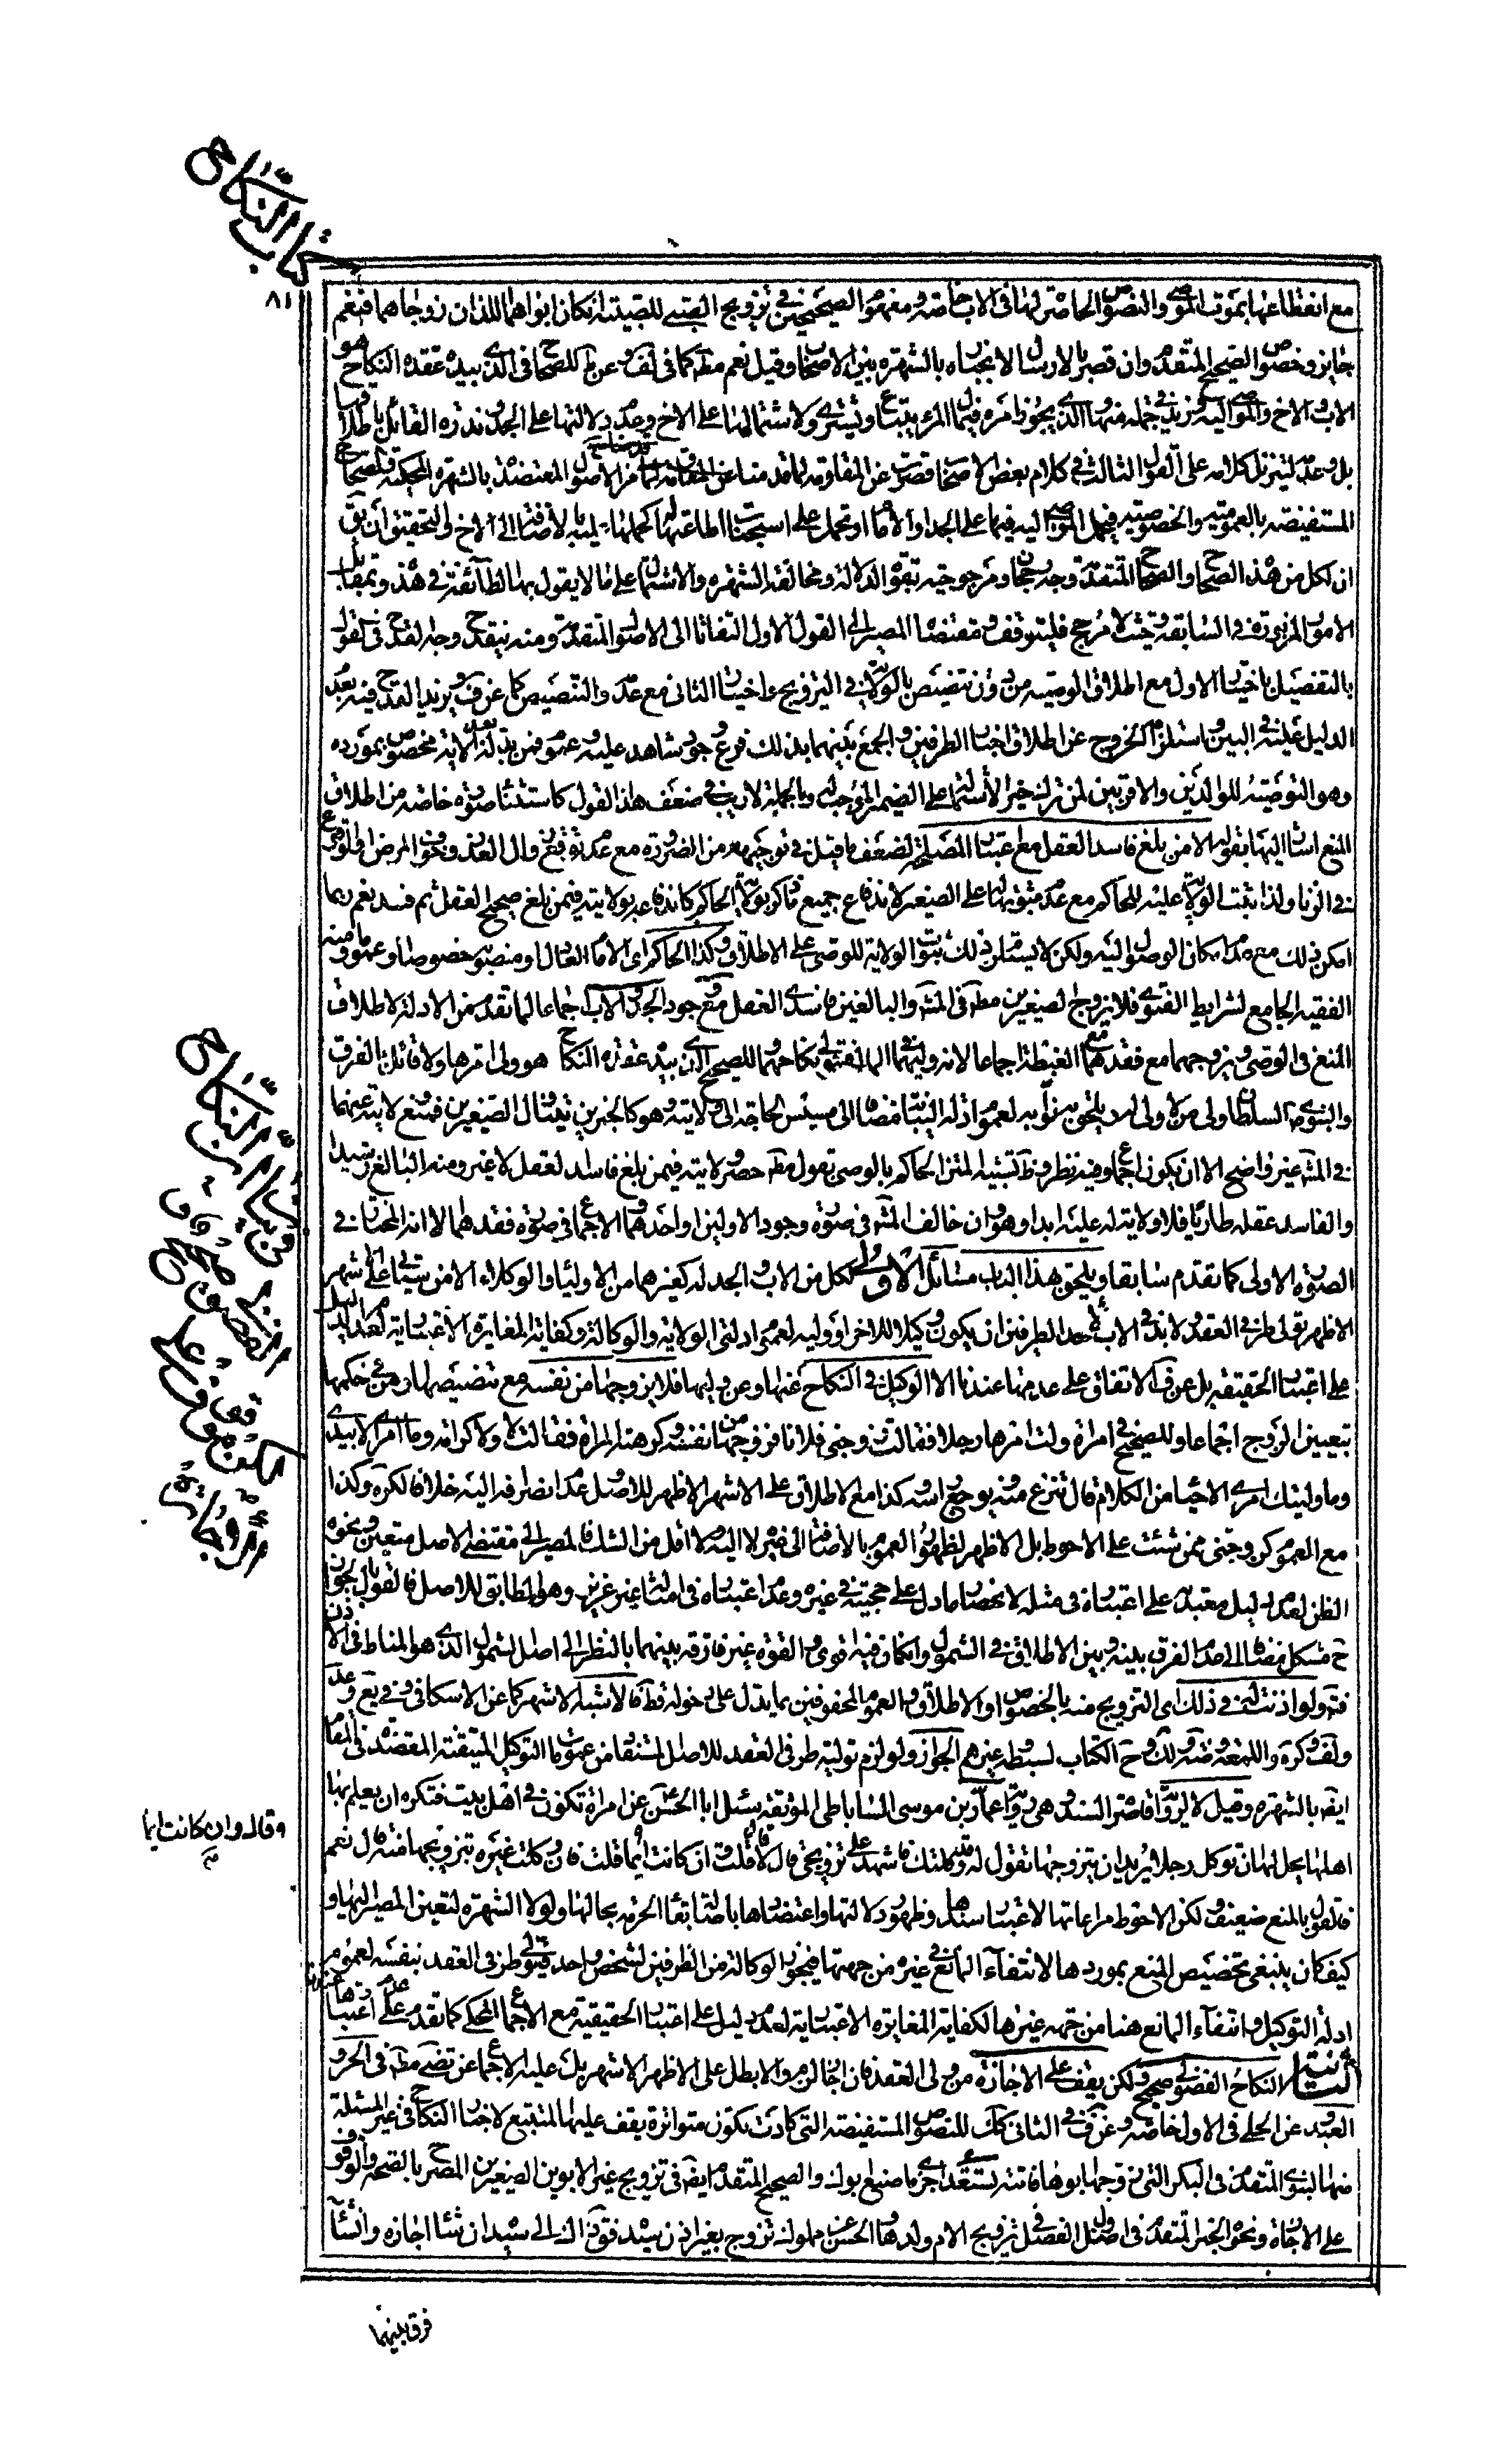 كتاب النكاح
٨١
مع انقطاعها بموت الموصي والنصوص الحاصرة لها في الاب خاصة ومفهوم الصحيحين في تزويج الصبي للصبية ان كان ابواهما اللذان زوجاهما فنعم
جايز وخصوص الصحيح المتقدم وان قصر بالارسال لانجباره بالشهرة بين الاصحاب وقيل نعم مط كما في لف وعن ط للصحاح في الذي بيده عقدة النكاح هو
الاب والاخ والموصى اليه وزيد في جملة منها الذي يجوز امره في مال المرأة يبتاع ويشتري ولاشتمالها على الاخ وعدم دلالتها على الجد وندرة القائل باطلاقها
بل وعدمه لتنزيل كلامه على القول الثالث في كلام بعض الاصحاب قصرت عن المقاومة لما قدمنا من الاصول المعتضدة بالشهرة المحكية والصحاح
المستفيضة بالعمومية والخصوصية فيحمل الموصى اليه فيها على الجد او الامام او تحمل على استحباب اطاعتها له كحملها عليه بالاضافة الى الاخ والتحقيق ان يق
ان لكل من هذه الصحاح والصحاح المتقدمة وجه رجحان ومرجوحية بقوة الدلالة ومخالفة الشهرة والاشتمال على ما لا يقول بها الطائفة في هذه وبمقابل
الامور المزبورة في السابقة وحيث لا مرجح فليتوقف ومقتضاه المصير الى القول الاول التفاتا الى الاصول المتقدمة ومنه ينقدح وجه القدح في القول
بالتفصيل باختيار الاول مع اطلاق الوصية من دون تنصيص بالولاية في التزويج واختيار الثاني مع عدمه والتنصيص كما عن ف ويزيد القدح فيه بعدم
الدليل عليه في البين واستلزامه الخروج عن اطلاق اخبار الطرفين والجمع بينهما بذلك فرع وجود شاهد عليه وعموم فمن بدله الاية مخصوص بمورده
وهو التوصية للوالدين والاقربين لمن ترك خيرا لاشتمالها على الضمير الراجع اليه وبالجملة لا ريب في ضعف هذا القول كاستثناء صورة خاصة من اطلاق
المنع اشار اليها بقوله الا من بلغ فاسد العقل مع اعتبار المصلحة لضعف ما قيل في توجيهه من الضرورة مع عدم توقع زوال العذر وخوف المرض او الوقوع
في الزنا ولذا تثبت الولاية عليه للحاكم مع عدم ثبوتها له على الصغير لاندفاع جميع ما ذكر بولاية الحاكم كاندفاعه بولايته فيمن بلغ صحيح العقل ثم فسد نعم ربما
امكن ذلك مع عدم امكان الوصول اليه ولكن لا يستلزم ذلك ثبوت الولاية للوصي على الاطلاق وكذا الحاكم اي الامام العادل او منصوبه خصوصا او عموما ومنه
الفقيه الجامع لشرايط الفتوى فلا يزوج الصغيرين مط في المش والبالغين فاسدي العقل مع وجود الجد والاب اجماعا لما تقدم من الادلة لاطلاق
المنع في الوصي ويزوجهما مع فقدهما مع الغبطة اجماعا لانه وليهما في المال فيتولى نكاحهما للصحيح الذي بيده عقدة النكاح هو ولي امرها ولا قائل بالفرق
والنبوي صم السلطان ولي من لا ولي له ويلحق به نوابه لعموم ادلة النيابة مضافا الى مسيس الحاجة الى ولايته وهو كالخبرين يتناول الصغيرين فمنع ولايته عنهما
في المش غير واضح الا ان يكون اجماعا وفيه نظر وظ تشبيه المتن الحاكم بالوصي تقول مط حصر ولايته فيمن بلغ فاسد العقل لا غير ومنه البالغ رشيدا
والفاسد عقله طاريا فلا ولاية له عليه ابدا وهو وان خالف المش في صورة وجود الاولين او احدهما والاجماع في صورة فقدهما الا انه المختار في
الصورة الاولى كما تقدم سابقا ويلحق بهذا الباب مسائل الاولى لكل من الاب والجد له كغيرهما من الاولياء والوكلاء الا من سيأتي على اشهر
الاظهر تولى طرفي العقد ولا بد في الاب لاحد الطرفين ان يكون وكيلا للاخر او وليه لعموم ادلتي الولاية والوكالة وكفاية المغايرة الاعتبارية لعدم الدليل
على اعتبار الحقيقة بل عن ف الاتفاق على عدمها عندنا الا الوكيل في النكاح عنها وعن وليها فلا يزوجها من نفسه مع تنصيصها وفي حكمها
بتعيين الزوج اجماعا وللصحيح في امرأة ولت امرها رجلا فقالت زوجني فلانا فزوجها من نفسه وكرهت المرأة فقالت لا ولا كرامة وما امري الا بيدي
وما وليتك امري الا حياء من الكلام قال تنزع منه ويوجع رأسه وكذا مع الاطلاق على الاشهر الاظهر للاصل وعدم انصرافه اليه خلافا لكره وكذا
مع العموم كزوجني ممن شئت على الاحوط بل الاظهر لظهور العموم بالاضافة الى غيره لا اليه ولا اقل من الشك فالمصير الى مقتضى الاصل متعين ونحوه
الظن لعدم دليل معتد به على اعتباره في مثله لانحصار ما دل على حجيته في غيره وعدم اعتباره في امثالنا غير عزيز وهو المطابق للاصل فالقول بالجواز
ح مشكل مضافا الى عدم الفرق بينه وبين الاطلاق في الشمول وان كان فيه اقوى والقوة غير فارقة بينهما بالنظر الى اصل الشمول الذي هو المناط في الاذن
فت ولو اذنت له في ذلك اي التزويج منه بالخصوص او الاطلاق والعموم المحفوفين بما يدل على دخوله قط فالاشبه الاشهر كما عن الاسكافي وفي يع وعد
ولف وكره واللمعة وضه ولك وح الكتاب لسبطه وغيرهم الجواز ولو لزم تولية طرفي العقد للاصل المستفاد من عمومات التوكيل المتيقنة المعتضدة في المقام
ايضا بالشهرة وقيل لا لرواية قاصرة السند وهي رواية عمار بن موسى الساباطي الموثقة سئل ابا الحسن عن امرأة تكون في اهل بيت فتكره ان يعلم بها
اهلها يحل لها ان توكل رجلا يريد ان يتزوجها تقول له وكلتك فاشهد على تزويجي قال لا قلت وان كانت ايما قلت فان وكلت غيره بتزويجها منه قال نعم
فالقول بالمنع ضعيف ولكن الاحوط مراعاتها لاعتبار سندها وظهور دلالتها واعتضادها باصالة بقاء الحرمة بحالها ولولا الشهرة لتعين المصير اليها و
كيف كان ينبغي تخصيص المنع بموردها لانتفاء المانع في غيره من جهتها فيجوز الوكالة من الطرفين لشخص واحد فيتولى طرفي العقد بنفسه لعموم
ادلة التوكيل وانتفاء المانع هنا من جهة غيرها لكفاية المغايرة الاعتبارية لعدم دليل على اعتبار الحقيقية مع الاجماع المحكي كما تقدم على عدم اعتبارها
الثانية النكاح الفضولي صحيح ولكن يقف على الاجازة من ولي العقد فان اجاز لزم والا بطل على الاظهر الاشهر بل عليه الاجماع عن تضى مط في الحر و
العبد وعن الحلي في الاول خاصة وعن ف في الثاني كك للنصوص المستفيضة التي كادت تكون متواترة يقف عليها المتتبع لاخبار النكاح في غير المسئلة
منها النبوي المتقدم في البكر التي زوجها ابوها فاتته تستعدي اجيزي ما صنع ابوك والصحيح المتقدم ايضا في تزويج غير الابوين الصغيرين المصرح بالصحة والوقوف
على الاجازة ونحوه الخبر المتقدم في اصل الفصل في تزويج الام ولدها والحسن عن مملوك تزوج بغير اذن سيده فق ذاك الى سيده ان شاء اجازه وان شاء
فرق بينهما
وقال وان كانت ايما